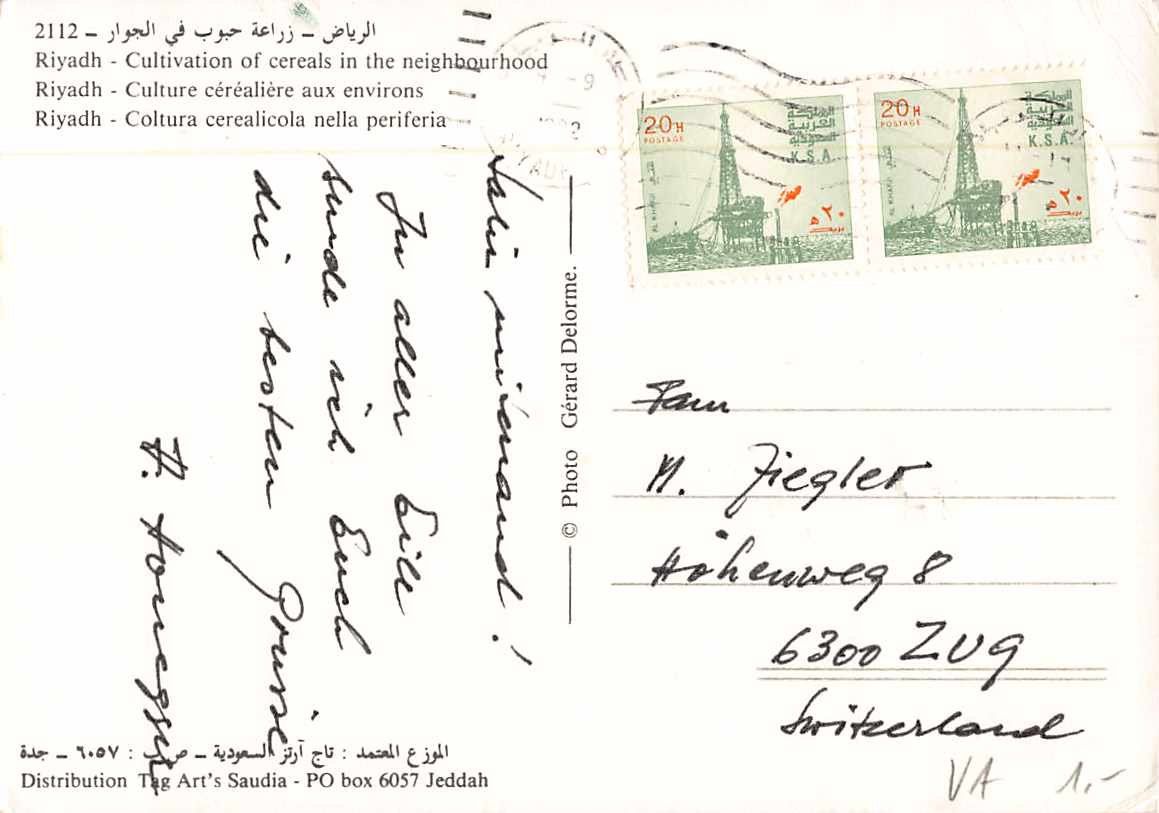 2112 – الرياض – زراعة حبوب في الجوار
Riyadh - Cultivation of cereals in the neighbourhood
Riyadh - Culture céréalière aux environs
Riyadh - Coltura cerealicola nella periferia
Salü mitenand!
In aller Eile
sende ich Euch
die besten Grüsse
H. Honegger
© Photo Gérard Delorme.
20 H
POSTAGE
المملكة
العربية
السعودية
K.S.A.
AL KHAFJI
٢٠ هـ
بريد
20 H
POSTAGE
المملكة
العربية
السعودية
K.S.A.
AL KHAFJI
٢٠ هـ
بريد
Fam
M. Ziegler
Höhenweg 8
6300 ZUG
Switzerland
الموزع المعتمد : تاج آرتز السعودية – ص ب : ٦٠٥٧ – جدة
Distribution Tag Art's Saudia - PO box 6057 Jeddah
VA 1.-